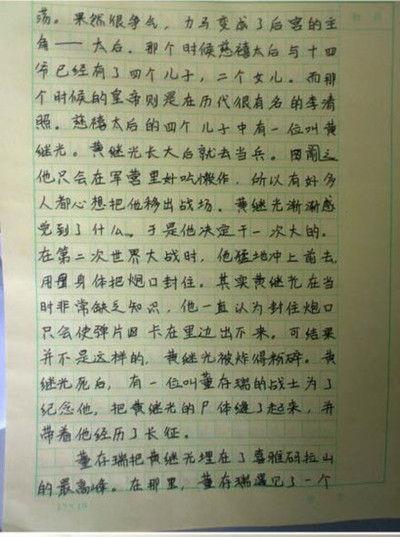 荡。果然很争气，力马变成了后宫的主
角——太后。那个时候慈禧太后与十四
爷已经有了四个儿子，二个女儿。而那
个时候的皇帝则是在历代很有名的李清
照。慈禧太后的四个儿子中有一位叫黄
继光。黄继光长大后就去当兵。因为
他只会在军营里好吃懒作，所以有好多
人都心想把他移出战场。黄继光渐渐感
觉到了什么。于是他决定干一次大的。
在第二次世界大战时，他猛地冲上前去，
用身体把炮口封住。其实黄继光在当
时非常缺乏知识，他一直认为封住炮口
只会使弹片卡在里边出不来。可结果
并不是这样的，黄继光被炸得粉碎。黄
继光死后，有一位叫董存瑞的战士为了
纪念他，把黄继光的尸体缝了起来，并
带着他经历了长征。
董存瑞把黄继光埋在了喜雅码拉山
的最高峰。在那里，董存瑞遇见了一个